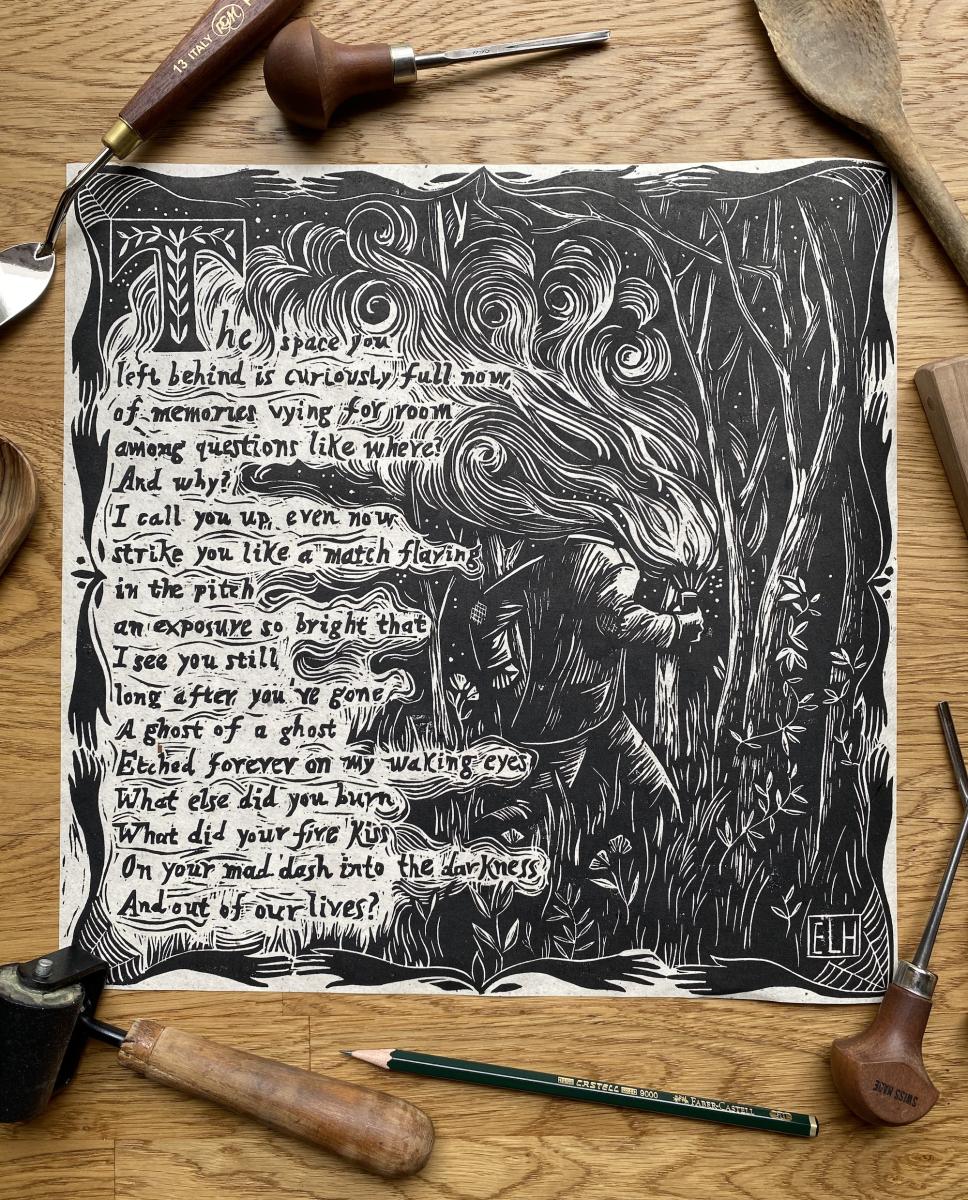 13 ITALY PGM
The space you
left behind is curiously full now,
of memories vying for room
among questions like where?
And why?
I call you up, even now
strike you like a match flaring
in the pitch
an exposure so bright that
I see you still
long after you've gone
A ghost of a ghost
Etched forever on my waking eyes
What else did you burn
What did your fire kiss
On your mad dash into the darkness
And out of our lives?
ELH
CASTELL 9000 FABER-CASTELL
SWISS MADE